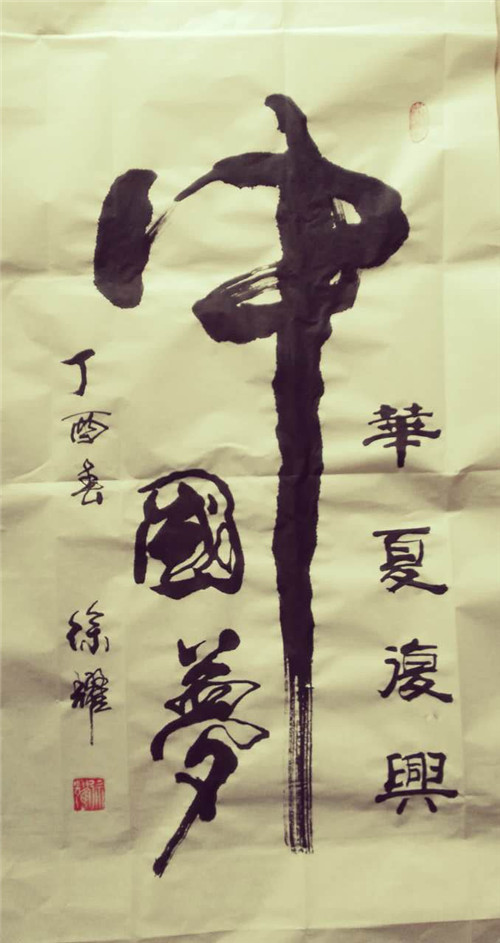 華夏復興
中國夢
丁酉春 徐耀